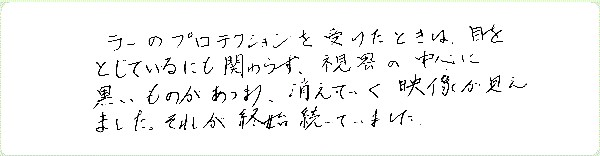 ラーのプロテクションを受けたときは、目を
とじているにも関わらず、視界の中心に
黒いものがあつまり、消えていく映像が見え
ました。それが終始続いていました。